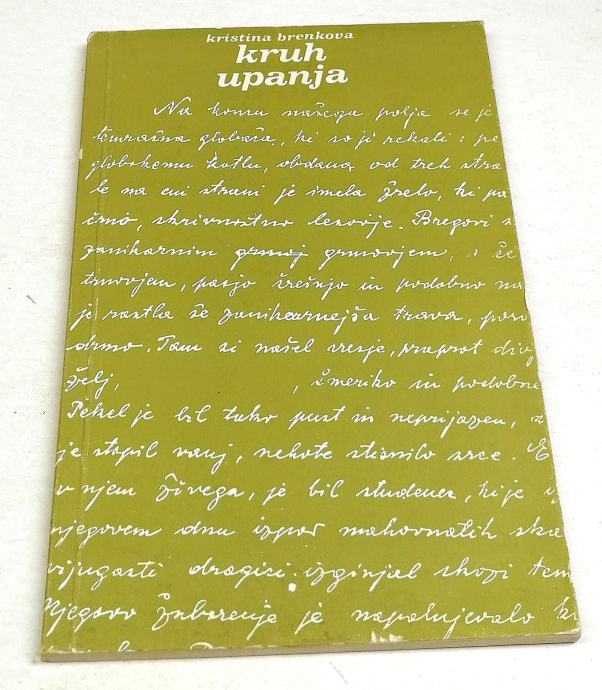 kristina brenkova
kruh
upanja
Na koncu našega polja se je
temračna globača, ki so ji rekali : pe
globokemu kotlu, obdana od treh stra
le na eni strani je imela žrelo, ki pa
črno, skrivnostno lezovje. Bregovi s
zanikarnim grmoj grmovjem, s če
trnovjem, pasjo črešnjo in podobno na
je rastla še zanikarnejša trava, poro
drmo. Tam si našel vresje, praprot div
želj, , čmeriko in podobne
Pekel je bil tako pust in neprijazen, z
je stopil vanj, nehote stisnilo srce. E
v njem živega, je bil studenec, ki je iz
njegovem dnu izpod mahovnatih ska
vijugasti dragici izginjal skozi tem
Njegovo žuborenje je napolnjevalo k